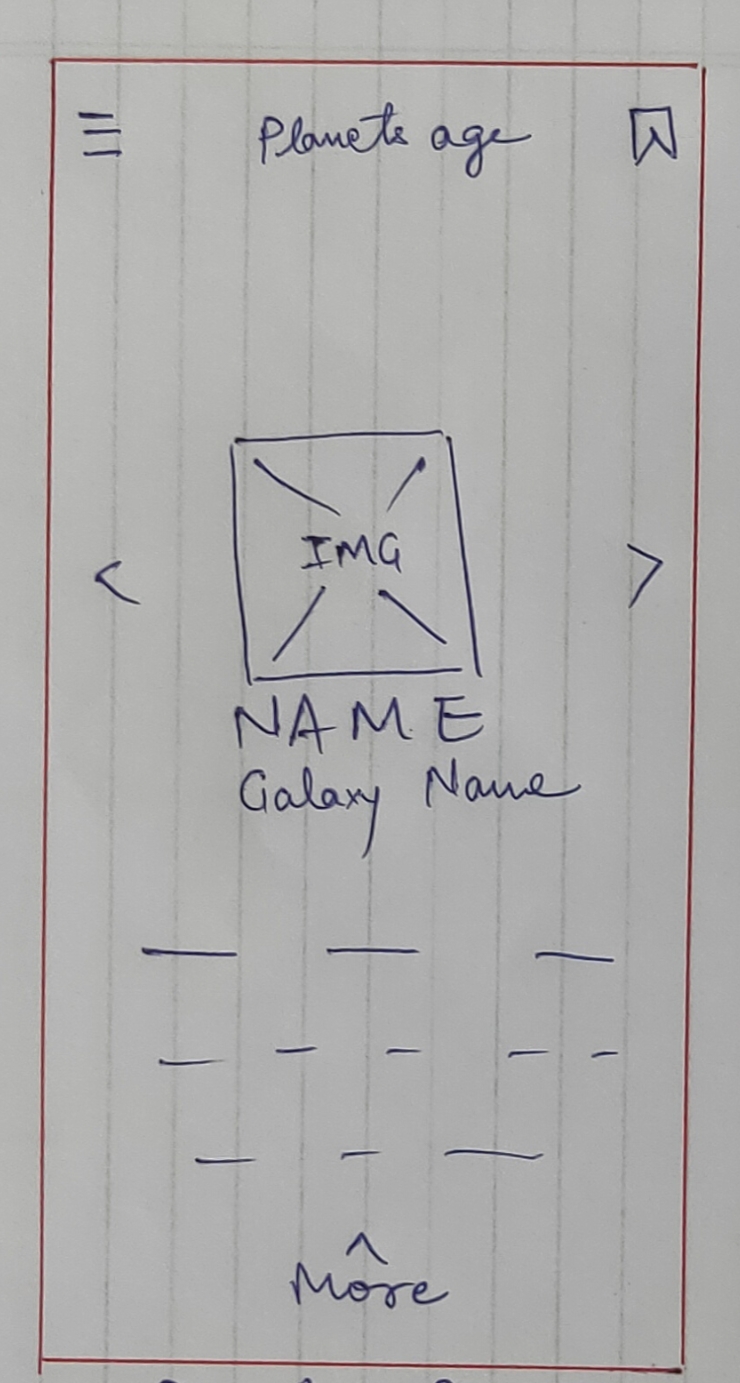 Planets age
IMG
NAME
Galaxy Name
More